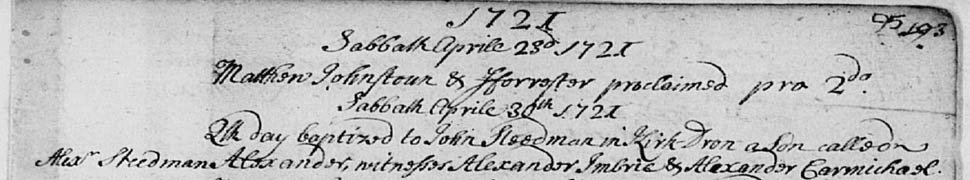 1721
193
Sabbath Aprile 23d 1721
Matthew Johnstoun & Fforrester proclaimed pro 2do.
Sabbath Aprile 30th 1721
Qlk day baptized to John Steedman in Kirk Dron a son called
Alexr Steedman Alexander, witnesses Alexander Imbrie & Alexander Carmichael.